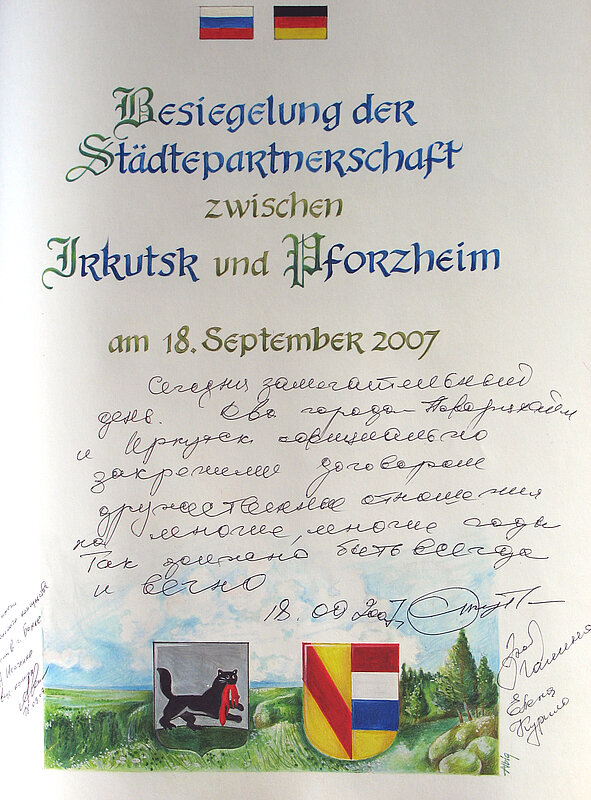 Besiegelung der
Städtepartnerschaft
zwischen
Irkutsk und Pforzheim
am 18. September 2007
Сегодня замечательный
день. Два города
и Иркутск официально
закрепили договором
дружественные отношения
на многие, многие годы
Так должно быть всегда
и вечно
18.09 2007
Галина
Елена
Курило